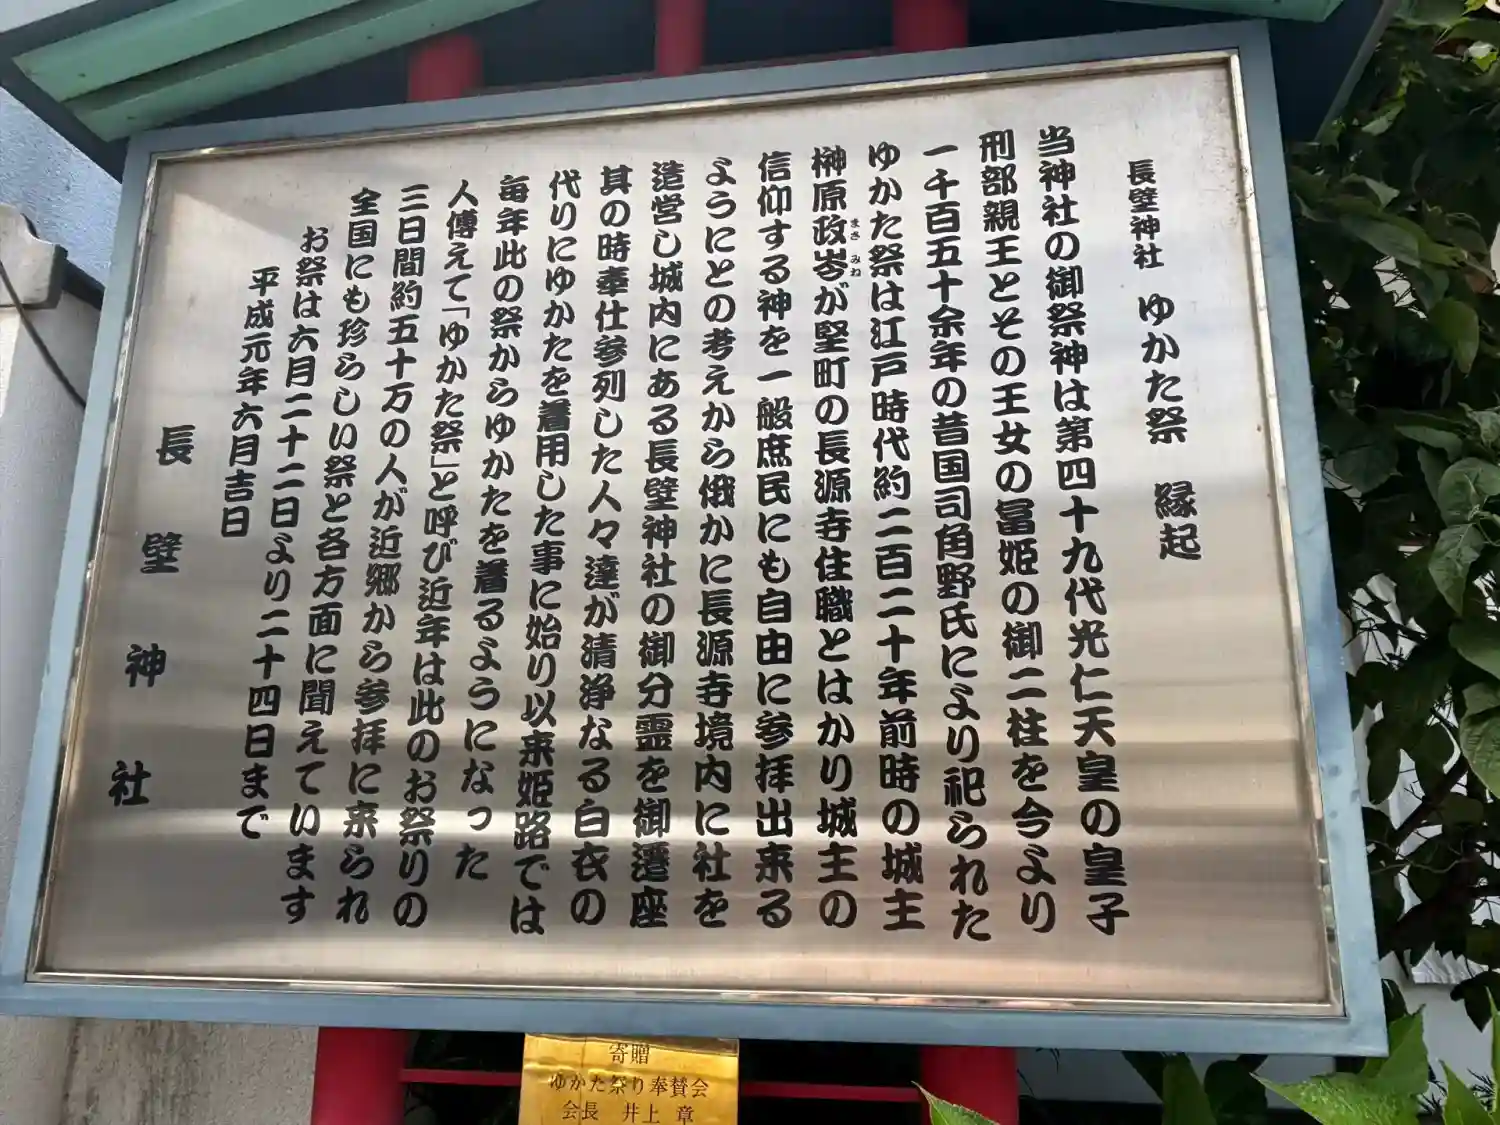 長壁神社 ゆかた祭 縁起
当神社の御祭神は第四十九代光仁天皇の皇子
刑部親王とその王女の冨姫の御二柱を今より
一千百五十余年の昔国司角野氏により祀られた
ゆかた祭は江戸時代約二百二十年前時の城主
榊原政岑が竪町の長源寺住職とはかり城主の
まさ みね
信仰する神を一般庶民にも自由に参拝出来る
ようにとの考えから俄かに長源寺境内に社を
造営し城内にある長壁神社の御分霊を御遷座
其の時奉仕参列した人々達が清浄なる白衣の
代りにゆかたを着用した事に始り以来姫路では
毎年此の祭からゆかたを着るようになった
人傅えて「ゆかた祭」と呼び近年は此のお祭りの
三日間約五十万の人が近郷から参拝に来られ
全国にも珍らしい祭と各方面に聞えています
お祭は六月二十二日より二十四日まで
平成元年六月吉日
長壁神社
寄贈
ゆかた祭り奉賛会
会長 井上 章